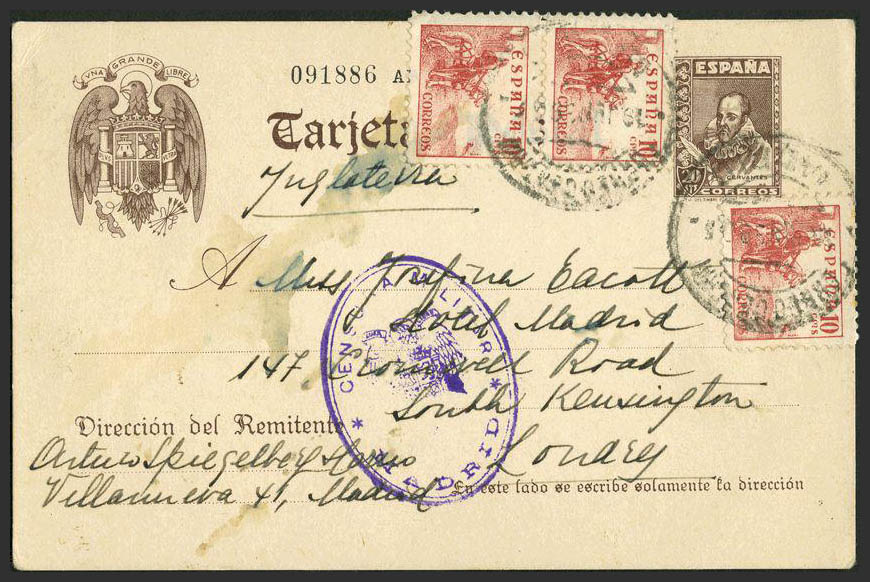 UNA GRANDE LIBRE
091886
Tarjeta
PLVS VLTRA
ESPAÑA
CERVANTES
CORREOS
ESPAÑA
CORREOS
10
CTMOS
ESPAÑA
CORREOS
10
CTMOS
Inglaterra
A Miss Josefina Eacott
Hotel Madrid
147, Cromwell Road
South Kensington
Londres
ESPAÑA
CORREOS
10
CTMOS
CENSURA MILITAR
* MADRID *
Dirección del Remitente
Arturo Spiegelberg
Villanueva 41, Madrid
En este lado se escribe solamente la dirección